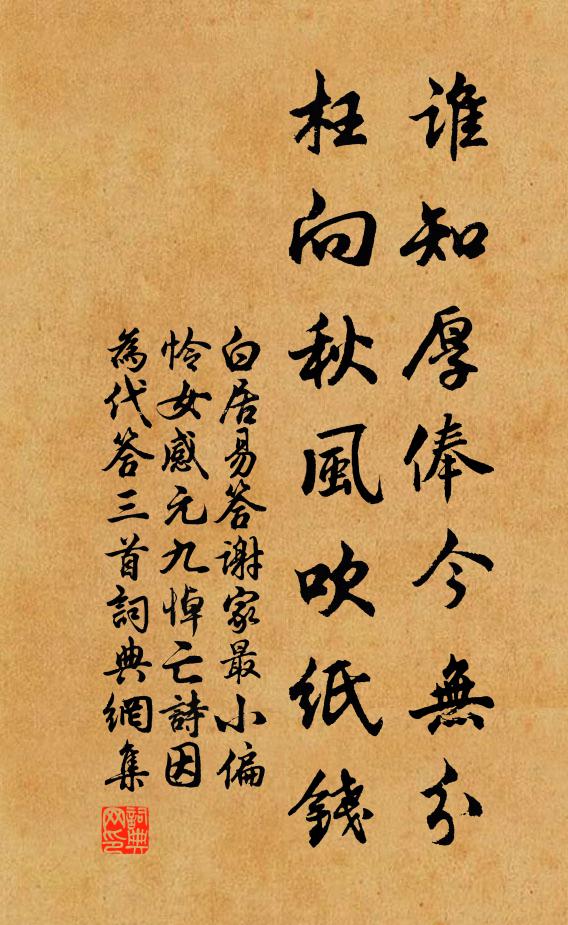 誰知厚俸今無分
枉向秋風吹紙錢
白居易答謝家最小偏
怜女感元九悼亡詩因
為代答三首詞典網集
詞典网印